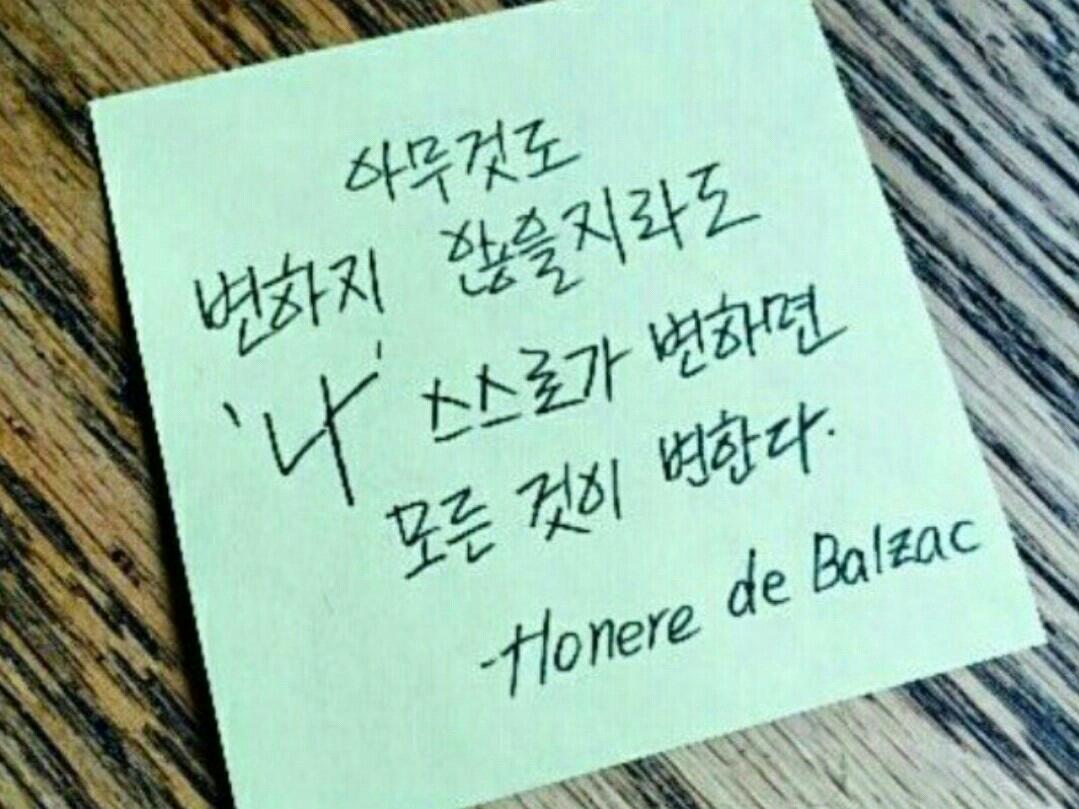 아무것도
변하지 않을지라도
'나' 스스로가 변하면
모든 것이 변한다.
-Honere de Balzac